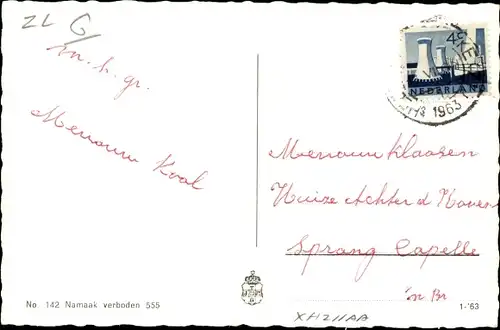 ZL G/
m. h. gr.
Menouw Kool
4c
NEDERLAND
1963
Menouw Klaasen
Huize Achter d Haven
Sprang Capelle
n Br
No 142 Namaak verboden 555
1-'63
XH211AA